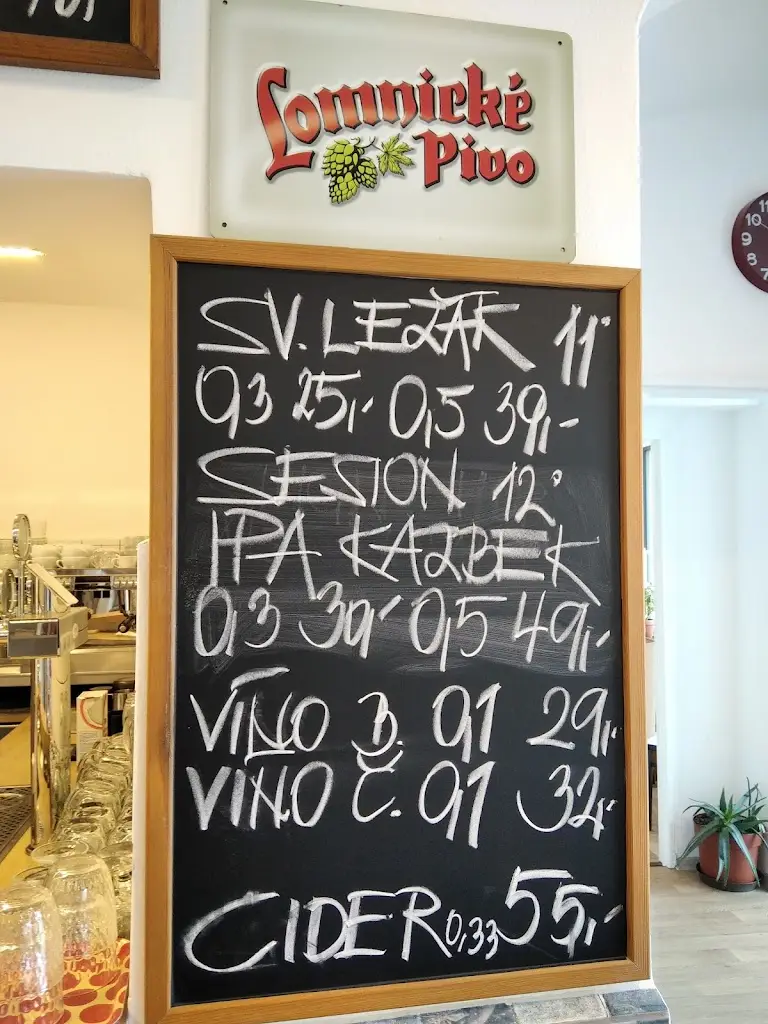 Lomnické
Pivo
SV. LEŽÁK 11°
0,3 25,- 0,5 39,-
SESION 12°
IPA KAZBEK
0,3 30,- 0,5 49,-
VÍNO B. 0,1 29,-
VINO Č. 0,1 32,-
CIDER 0,33 55,-
11
10
9
8
7